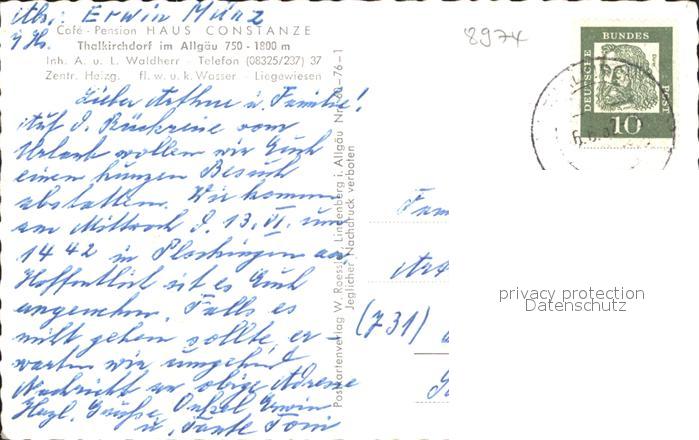 Abs.: Erwin Münz
z. Zt.
Café - Pension HAUS CONSTANZE
Thalkirchdorf im Allgäu 750 - 1800 m
Inh. A. u. L. Waldherr - Telefon (08325/237) 37
Zentr. Heizg. fl. w. u. k. Wasser - Liegewiesen
Lieber Arthur u. Familie!
Auf d. Rückreise vom
Urlaub wollen wir Euch
einen kurzen Besuch
abstatten. Wir kommen
am Mittwoch d. 13. VI. um
1442 in Plochingen an.
Hoffentlich ist es Euch
angenehm. Falls es
nicht gehen sollte, er-
warten wir umgehend
Nachricht an obige Adresse
Herzl. Grüße Onkel Erwin
u. Tante Toni
Postkartenverlag W. Roessler, Lindenberg i. Allgäu Nr. 60-76-1
Jeglicher Nachdruck verboten
8974
DEUTSCHE BUNDES POST
10
Fam
Art
(731)
privacy protection
Datenschutz